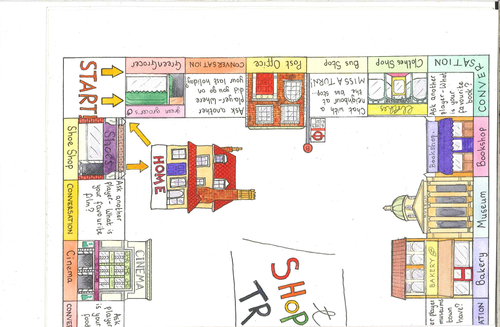 START
GreenGrocer
green grocer's
CONVERSATION
Ask another
player-Where
did you go on
your last holiday
Post Office
Bus Stop
Chat with a
neighbor at
the bus stop
MISS A TURN!
Clothes Shop
Clothes
CONVERSATION
Ask another
player-What
is your
favourite
book?
Bookshop
Bookshop
Museum
Bakery
BAKERY
Shoe Shop
Shoes
HOME
CONVERSATION
Ask another
player-What is
your favourite
film?
Cinema
CINEMA
CONVER
Ask
player
is your
food
ATION
player
museums
town
have?
SHOP
TR